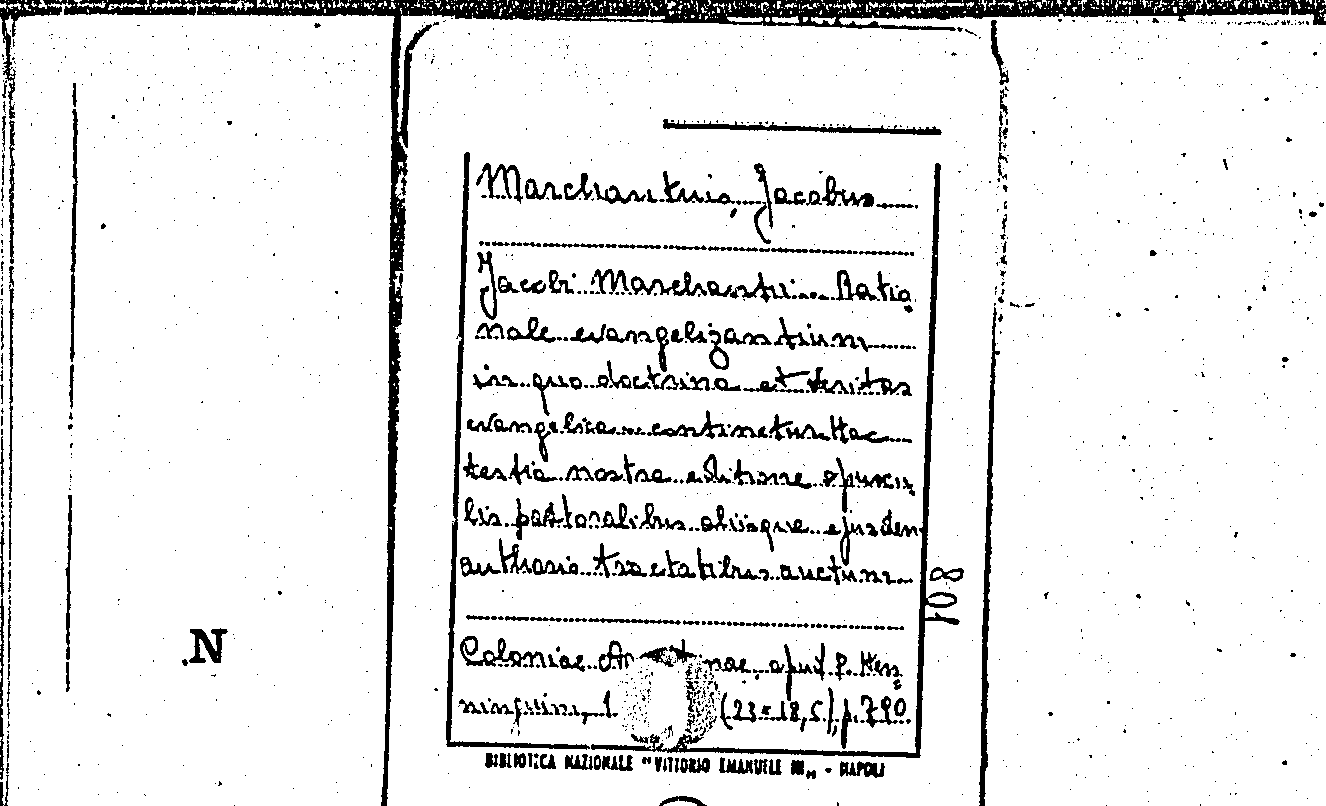 Marchantius, Jacobus
Jacobi Marchantii... Ratio=
nale evangelizantium
in quo doctrina et veritas
evangelica... continetur. Hac
tertia nostra editione opuscu=
lis pastoralibus aliisque ejusdem
authoris tractatibus auctum...
Coloniae apud P. Hen=
ningium, 1 (23 x 18,5), p. 790.
108
.N
BIBLIOTECA NAZIONALE "VITTORIO EMANUELE III„ - NAPOLI